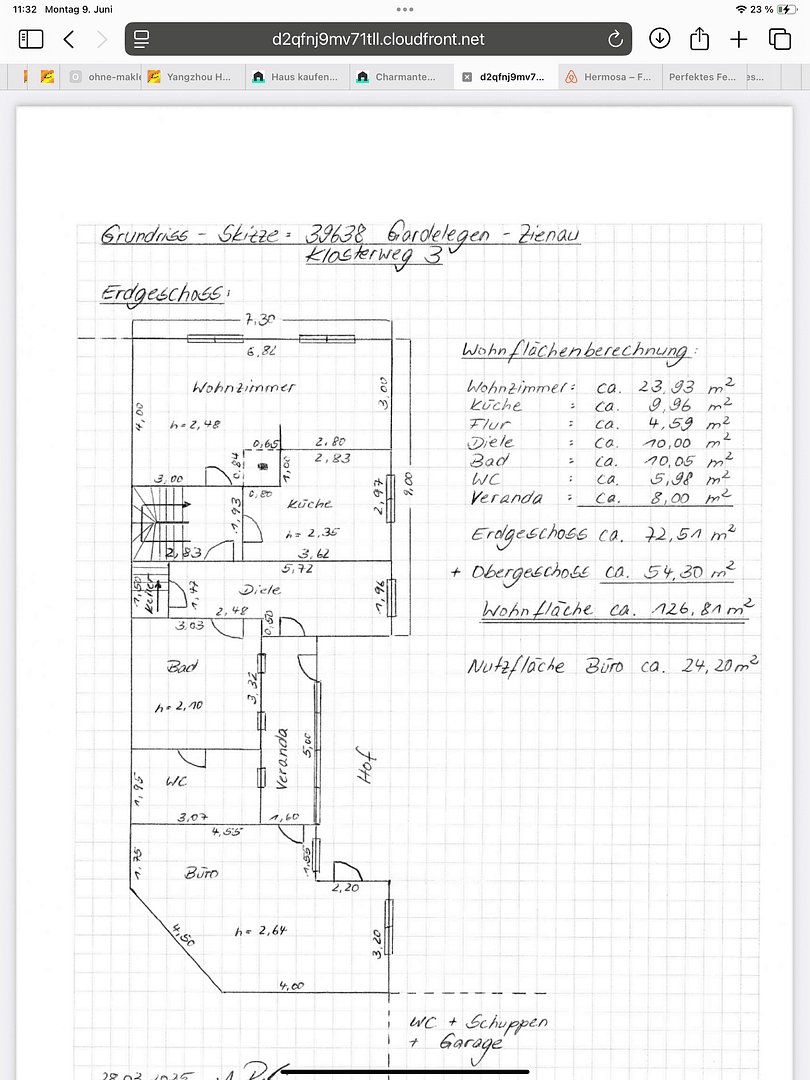 11:32 Montag 9. Juni
23 %
d2qfnj9mv71tll.cloudfront.net
ohne-makl
Yangzhou H...
Haus kaufen...
Charmante...
d2qfnj9mv7...
Hermosa – F...
Perfektes Fe...
es...
Grundriss - Skizze: 39638 Gardelegen - Zienau
Klosterweg 3
Erdgeschoss:
7,30
6,82
Wohnzimmer
4,00
3,00
h= 2,48
0,65
2,80
2,83
0,84
1,00
3,00
0,80
Küche
2,97
9,00
1,93
h= 2,35
2,83
3,62
5,72
1,50
Keller
1,47
Diele
1,96
2,48
3,03
0,50
Bad
3,32
h= 2,10
Veranda
5,00
Hof
WC
1,95
3,07
1,60
4,55
1,75
1,55
Büro
2,20
4,50
h= 2,64
3,20
4,00
WC + Schuppen
+ Garage
Wohnflächenberechnung:
Wohnzimmer: ca. 23,93 m²
Küche : ca. 9,96 m²
Flur : ca. 4,59 m²
Diele : ca. 10,00 m²
Bad : ca. 10,05 m²
WC : ca. 5,98 m²
Veranda : ca. 8,00 m²
Erdgeschoss ca. 72,51 m²
+ Obergeschoss ca. 54,30 m²
Wohnfläche ca. 126,81 m²
Nutzfläche Büro ca. 24,20 m²